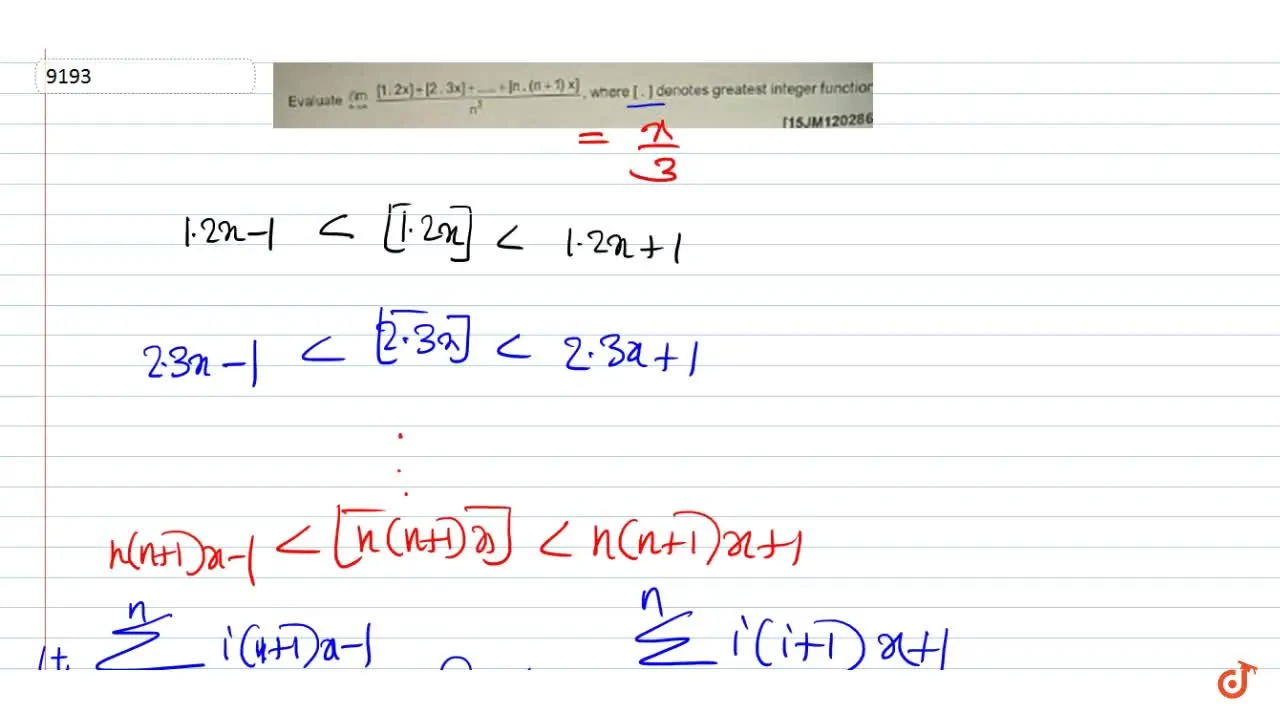 9193
Evaluate lim [1.2x]+[2.3x]+.....+[n.(n+1)x] / n³, where [.] denotes greatest integer function
[15JM120286
= x/3
1.2x-1 < [1.2x] < 1.2x+1
2.3x-1 < [2.3x] < 2.3x+1
n(n+1)x-1 < [n(n+1)x] < n(n+1)x+1
n n
∑ i(i+1)x-1 ∑ i(i+1)x+1